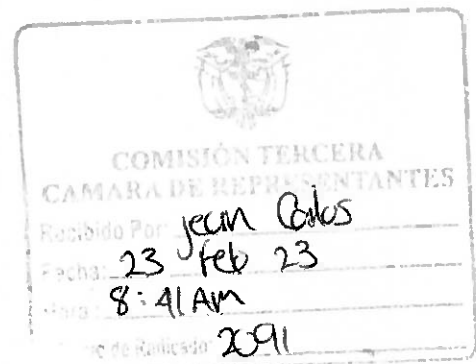 COMISIÓN TERCERA
CAMARA DE REPRESENTANTES
Recibido Por: Jean Carlos
Fecha: 23 feb 23
Hora: 8:41 AM
de Radicado: 2091